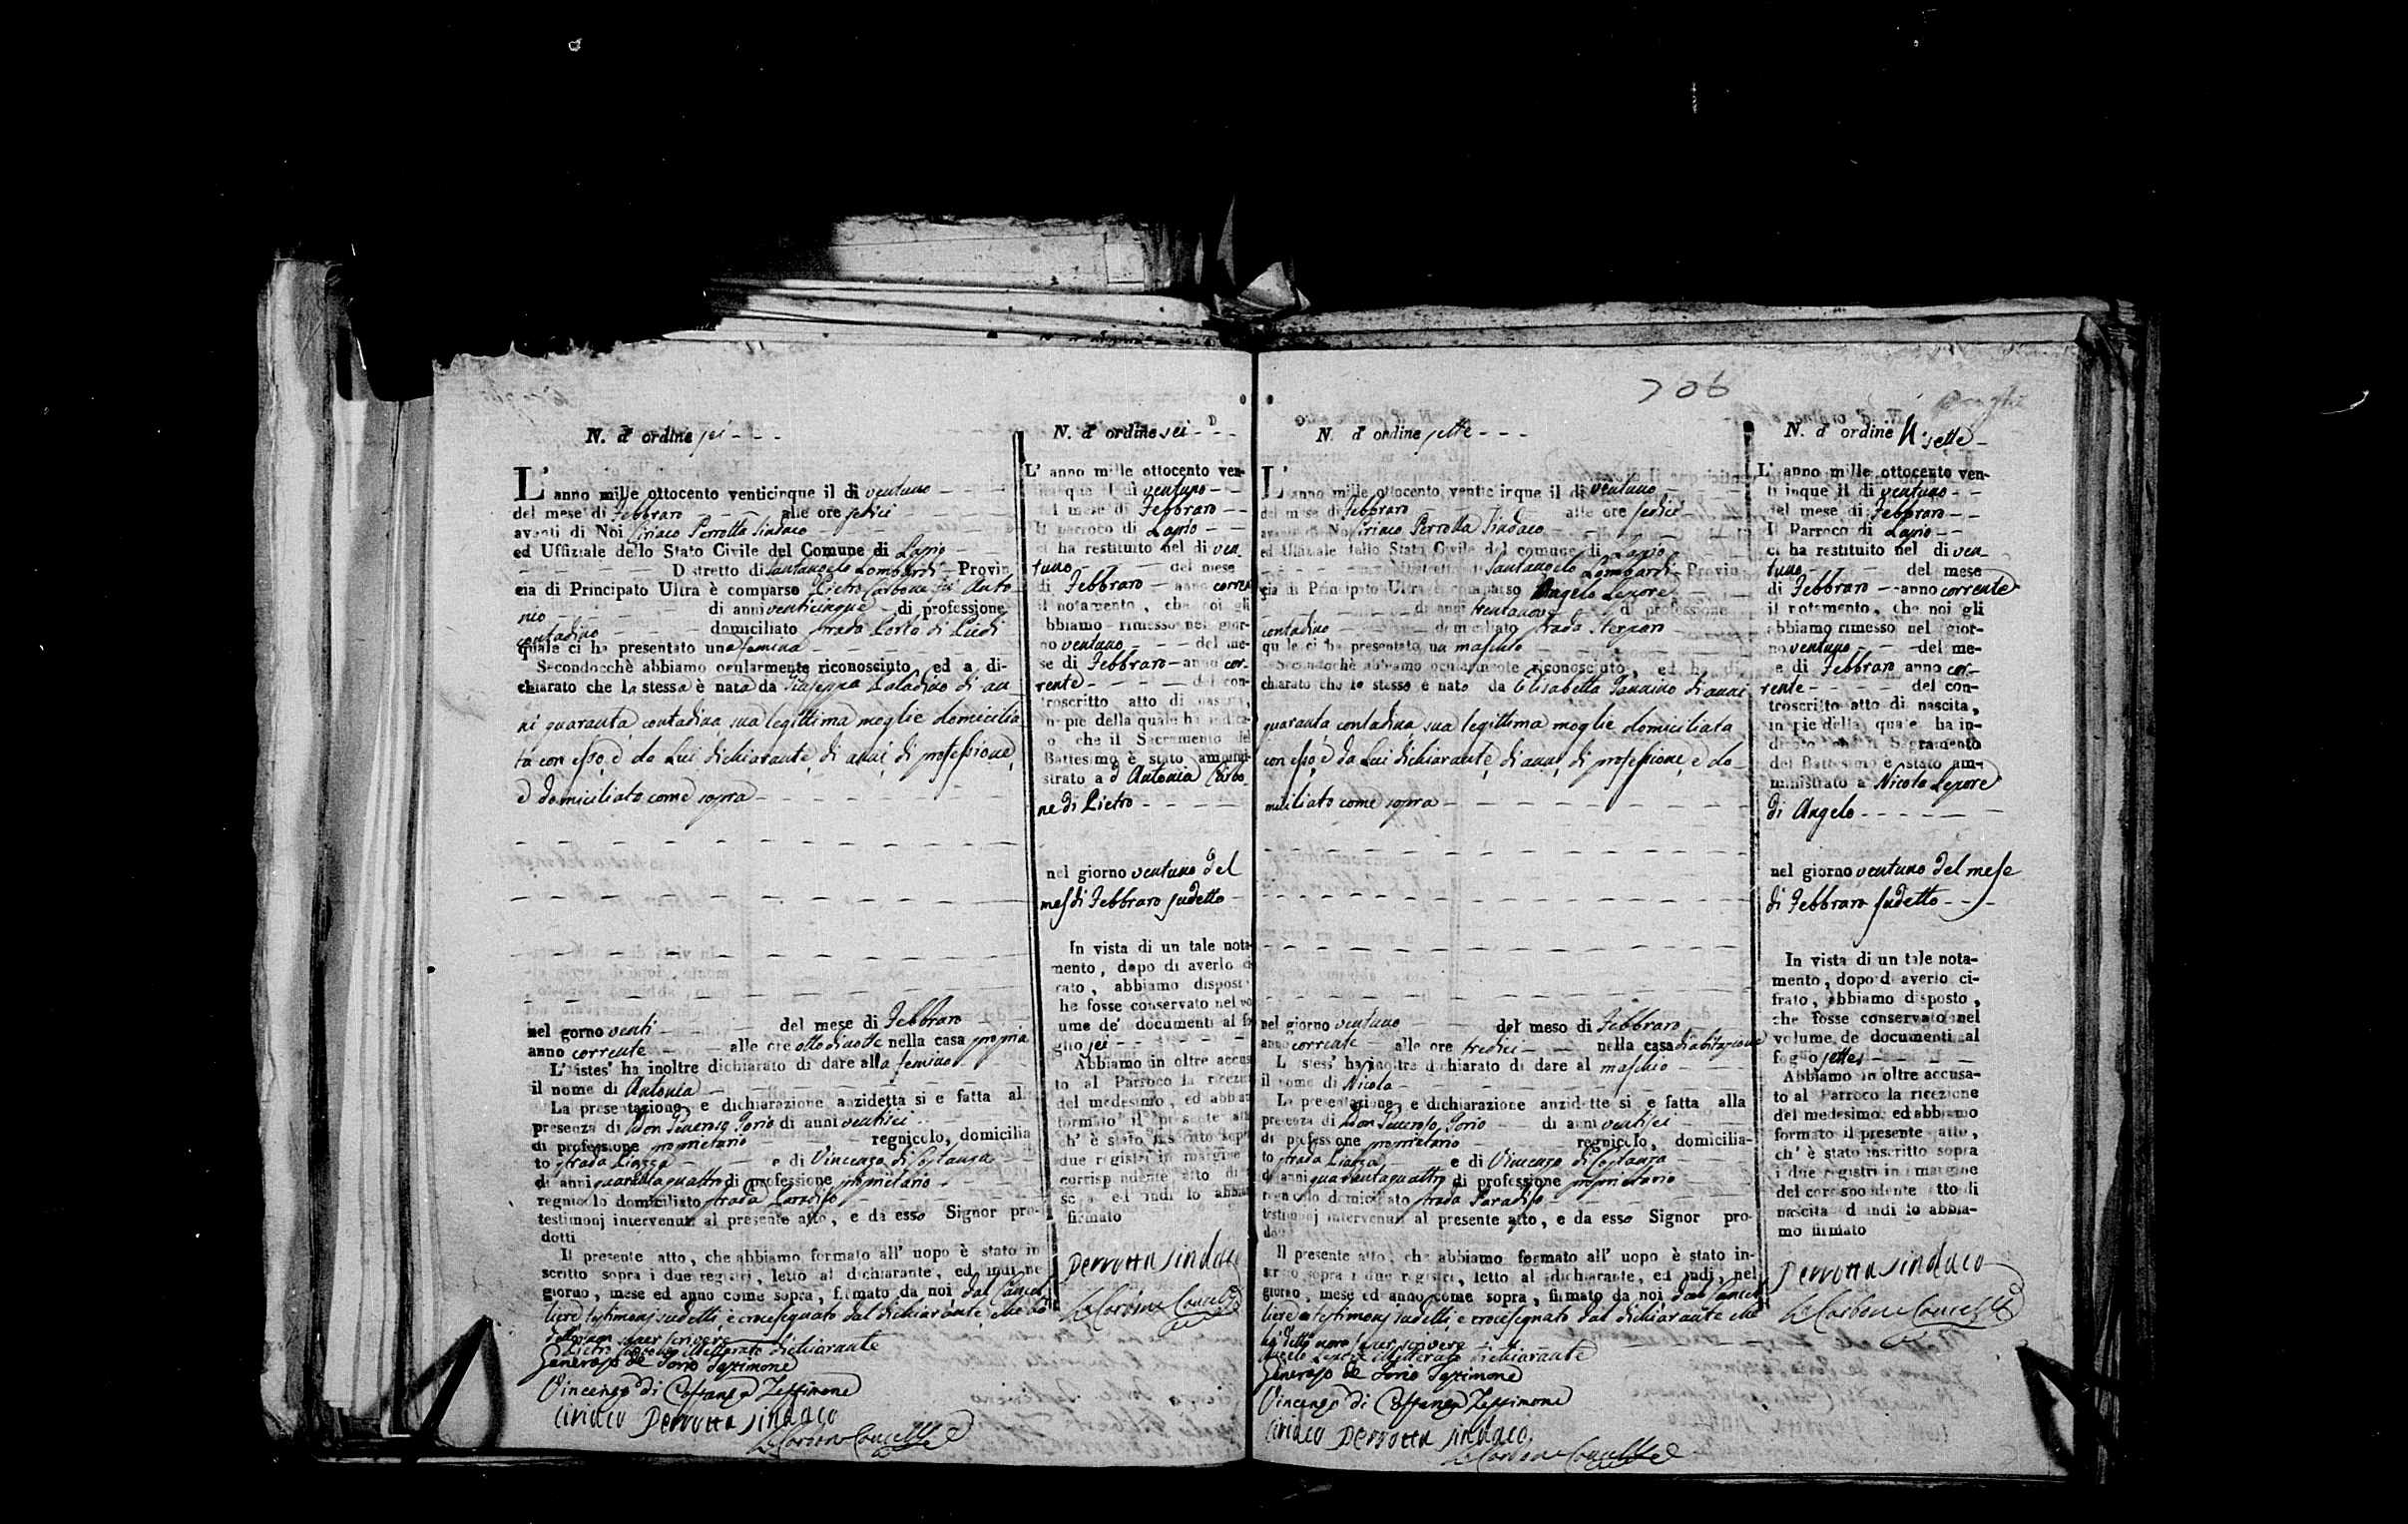 N. d' ordine sei
L' anno mille ottocento venticinque il dì ventuno
del mese di Febbraro alle ore sedici
avanti di Noi Ciriaco Perrotta Sindaco
ed Uffiziale dello Stato Civile del Comune di Lapio
Distretto di Santangelo Lombardi Provin
cia di Principato Ultra è comparso Pietro Carbone fu Anto
nio di anni venticinque di professione
contadino domiciliato strada Porto di Piedi
quale ci ha presentato una femina
Secondocchè abbiamo ocularmente riconosciuto, ed a di-
chiarato che la stessa è nata da Giuseppa Paladino di an
ni quaranta contadina sua legittima moglie domicilia
ta con esso, e da Lui dichiarante di anni di professione,
e domiciliato come sopra
nel gorno venti del mese di Febbraro
anno corrente alle ore otto di notte nella casa propria
L' istes' ha inoltre dichiarato di dare alla femina
il nome di Antonia
La presentazione, e dichiarazione anzidetta si e fatta al
presenza di Don Generoso Iorio di anni ventisei
di professione proprietario regnicolo, domicilia
to strada Piazza e di Vincenzo di Costanza
di anni quarantaquattro di professione proprietario
regnicolo domiciliato strada Paradiso
testimonj intervenuti al presente atto, e da esso Signor pro-
dotti
Il presente atto, che abbiamo formato all' uopo è stato in
scritto sopra i due registri, letto al dichiarante, ed indi ne
giorno, mese ed anno come sopra, firmato da noi dal Cancel
liere testimonj sudetti, e crocesegnato dal dichiarante che ha
detto non saper scrivere
Pietro Carbone illitterato dichiarante
Generoso de Iorio Testimone
Vincenzo di Costanza Testimone
Ciriaco Perrotta Sindaco
Carbone Cancelle
N. d' ordine sei
L' anno mille ottocento ven-
que il dì ventuno
del mese di Febbraro
Il parroco di Lapio
ci ha restituito nel dì ven
tuno del mese
di Febbraro anno corren
il notamento, che noi gli
abbiamo rimesso nel gior-
no ventuno del me-
se di Febbraro anno cor-
rente del con-
troscritto atto di nascita,
in pie della quale ha indica-
o che il Sacramento del
Battesimo è stato ammini-
strato a d Antonia Carbo-
ne di Pietro
nel giorno ventuno del
mes di Febbraro sudetto
In vista di un tale nota-
mento, dopo di averlo ci
rato, abbiamo dispost
he fosse conservato nel vo
ume de' documenti al fo
glio sei
Abbiamo in oltre accus
to al Parroco la ricezi
del medesimo, ed abbia
formato il presente att
ch' è stato inscritto sopr
due registri in margine
corrispondente atto di
sc ed indi lo abbia
firmato
Perrotta Sindaco
Carbone Cancelle
706
N. d' ordine sette
L' anno mille ottocento venticinque il dì ventuno
del mese di Febbraro alle ore sedici
avanti di Noi Ciriaco Perrotta Sindaco
ed Uffiziale dello Stato Civile del comune di Lapio
Distretto di Santangelo Lombardi Provin
cia di Principato Ultra è comparso Angelo Lepore
di anni trentanove di professione
contadino domiciliato strada Sterparo
quale ci ha presentato un maschio
Secondochè abbiamo ocularmente riconosciuto, ed ha di
chiarato che lo stesso è nato da Elisabetta Iannino di anni
quaranta contadina sua legittima moglie domiciliata
con esso, e da Lui dichiarante di anni, di professione, e do-
miciliato come sopra
nel giorno ventuno del meso di Febbraro
anno corrente alle ore tredici nella casa di abitazione
L stess' ha inoltre dichiarato di dare al maschio
il nome di Nicola
La presentazione, e dichiarazione anzidette si e fatta alla
presenza di Don Generoso Iorio di anni ventisei
di professione proprietario regnicolo, domicilia-
to strada Piazza e di Vincenzo di Costanza
di anni quarantaquattro di professione proprietario
regnicolo domiciliato strada Paradiso
testimonj intervenuti al presente atto, e da esso Signor pro-
dotti
Il presente atto, che abbiamo formato all' uopo è stato in-
scritto sopra i due registri, letto al dichiarante, ed indi, nel
giorno, mese ed anno come sopra, firmato da noi dal Cancel
liere testimonj sudetti, e crocesegnato dal dichiarante che
ha detto non saper scrivere
Angelo Lepore illitterato dichiarante
Generoso de Iorio Testimone
Vincenzo di Costanza Testimone
Ciriaco Perrotta Sindaco
Carbone Cancelle
N. d' ordine N. sette
L' anno mille ottocento ven-
ti inque il dì ventuno
del mese di Febbraro
Il Parroco di Lapio
ci ha restituito nel dì ven
tuno del mese
di Febbraro anno corrente
il notamento, che noi gli
abbiamo rimesso nel gior-
no ventuno del me-
se di Febbraro anno cor-
rente del con-
troscritto atto di nascita,
in pie della quale ha in-
dicato che il Sagramento
del Battesimo è stato am-
ministrato a Nicola Lepore
di Angelo
nel giorno ventuno del mese
di Febbraro sudetto
In vista di un tale nota-
mento, dopo d averlo ci-
frato, abbiamo disposto,
che fosse conservato nel
volume de documenti al
foglio sette
Abbiamo in oltre accusa-
to al Parroco la ricezione
del medesimo, ed abbiamo
formato il presente atto,
ch' è stato inscritto sopra
i due registri in margine
del corrispondente atto di
nascita d indi lo abbia-
mo firmato
Perrotta Sindaco
Carbone Cancelle